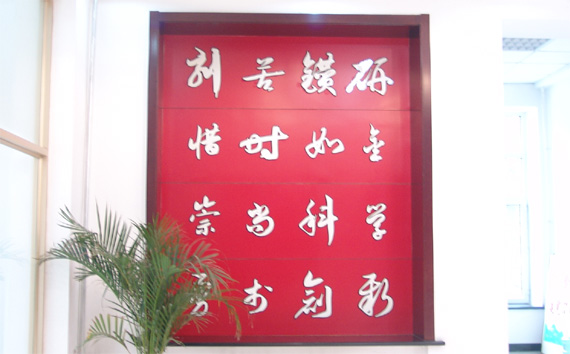 刻苦鑽研
惜时如金
崇尚科学
勇於創新